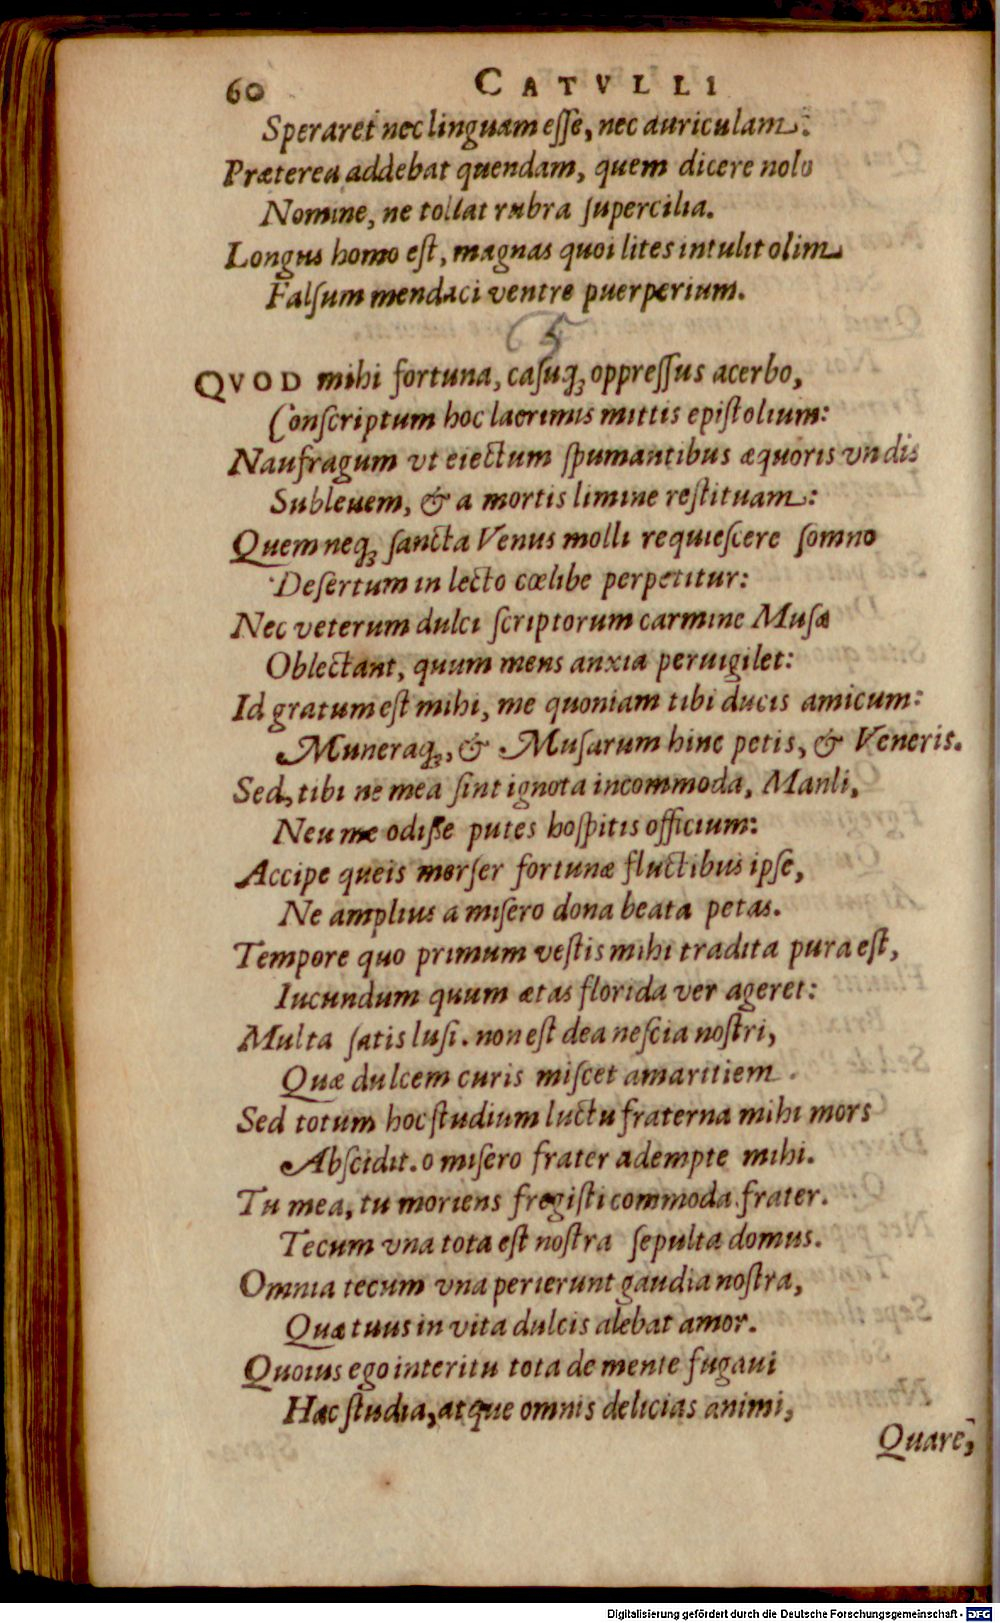 60 CATVLLI
Speraret nec linguam eſſe, nec auriculam:
Præterea addebat quendam, quem dicere nolo
Nomine, ne tollat rubra ſupercilia.
Longus homo eſt, magnas quoi lites intulit olim
Falſum mendaci ventre puerperium.
5
QVOD mihi fortuna, caſuq; oppreſſus acerbo,
Conſcriptum hoc lacrimis mittis epiſtolium:
Naufragum vt eiectum ſpumantibus æquoris vndis
Subleuem, & a mortis limine reſtituam:
Quem neq; ſancta Venus molli requieſcere ſomno
Deſertum in lecto cœlibe perpetitur:
Nec veterum dulci ſcriptorum carmine Muſæ
Oblectant, quum mens anxia peruigilet:
Id gratum eſt mihi, me quoniam tibi ducis amicum:
Muneraq;, & Muſarum hinc petis, & Veneris.
Sed, tibi ne mea ſint ignota incommoda, Manli,
Neu me odiſſe putes hoſpitis officium:
Accipe queis merſer fortunæ fluctibus ipſe,
Ne amplius a miſero dona beata petas.
Tempore quo primum veſtis mihi tradita pura eſt,
Iucundum quum ætas florida ver ageret:
Multa ſatis luſi. non eſt dea neſcia noſtri,
Quæ dulcem curis miſcet amaritiem.
Sed totum hoc ſtudium luctu fraterna mihi mors
Abſcidit. o miſero frater adempte mihi.
Tu mea, tu moriens fregiſti commoda frater.
Tecum vna tota eſt noſtra ſepulta domus.
Omnia tecum vna perierunt gaudia noſtra,
Quæ tuus in vita dulcis alebat amor.
Quoius ego interitu tota de mente fugaui
Hæc ſtudia, atque omnis delicias animi,
Quare,
Digitalisierung gefördert durch die Deutsche Forschungsgemeinschaft - DFG